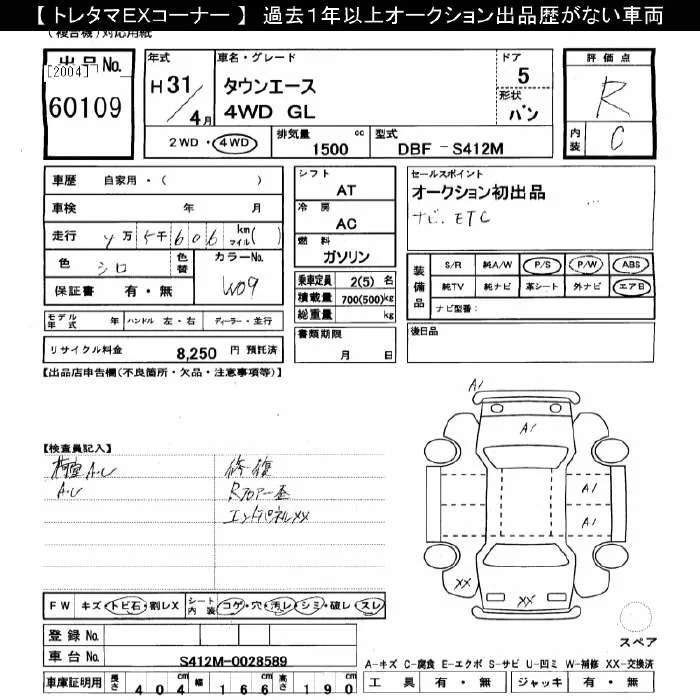 【 トレタマEXコーナー 】 過去1年以上オークション出品歴がない車両
(複合機)対応用紙
出品No.
[2004]
60109
年式
H 31 / 4月
車名・グレード
タウンエース
4WD GL
ドア
5
形状
バン
評価点
R
内装
C
2WD・4WD
排気量
1500 cc
型式
DBF - S412M
車歴 自家用・( )
車検 年 月
走行 万 千 606 km マイル( )
色 シロ
色替
カラーNo.
W09
保証書 有・無
モデル年式 年 ハンドル 左・右 ディーラー・並行
リサイクル料金 8,250 円 預託済
シフト
AT
冷房
AC
燃料
ガソリン
乗車定員 2(5) 名
積載量 700(500)kg
総重量 kg
書類期限
月 日
セールスポイント
オークション初出品
ナビ. ETC
装備品
S/R 純A/W P/S P/W ABS
純TV 純ナビ 革シート 外ナビ エアB
ナビ型番:
後日品
【出品店申告欄(不良箇所・欠品・注意事項等)】
【検査員記入】
A.U
A.U
修復
Rフロアー
エンドパネルXX
A1
A1
A1
A1
XX
XX
スペア
FW キズ・トビ石・割レX
シート内装 コゲ・穴・汚レ・シミ・破レ・スレ
登録 No.
車台 No. S412M-0028589
車庫証明用 長さ 404 幅 166 高さ 190
A-キズ C-腐食 E-エクボ S-サビ U-凹ミ W-補修 XX-交換済
工具 有・無 ジャッキ 有・無